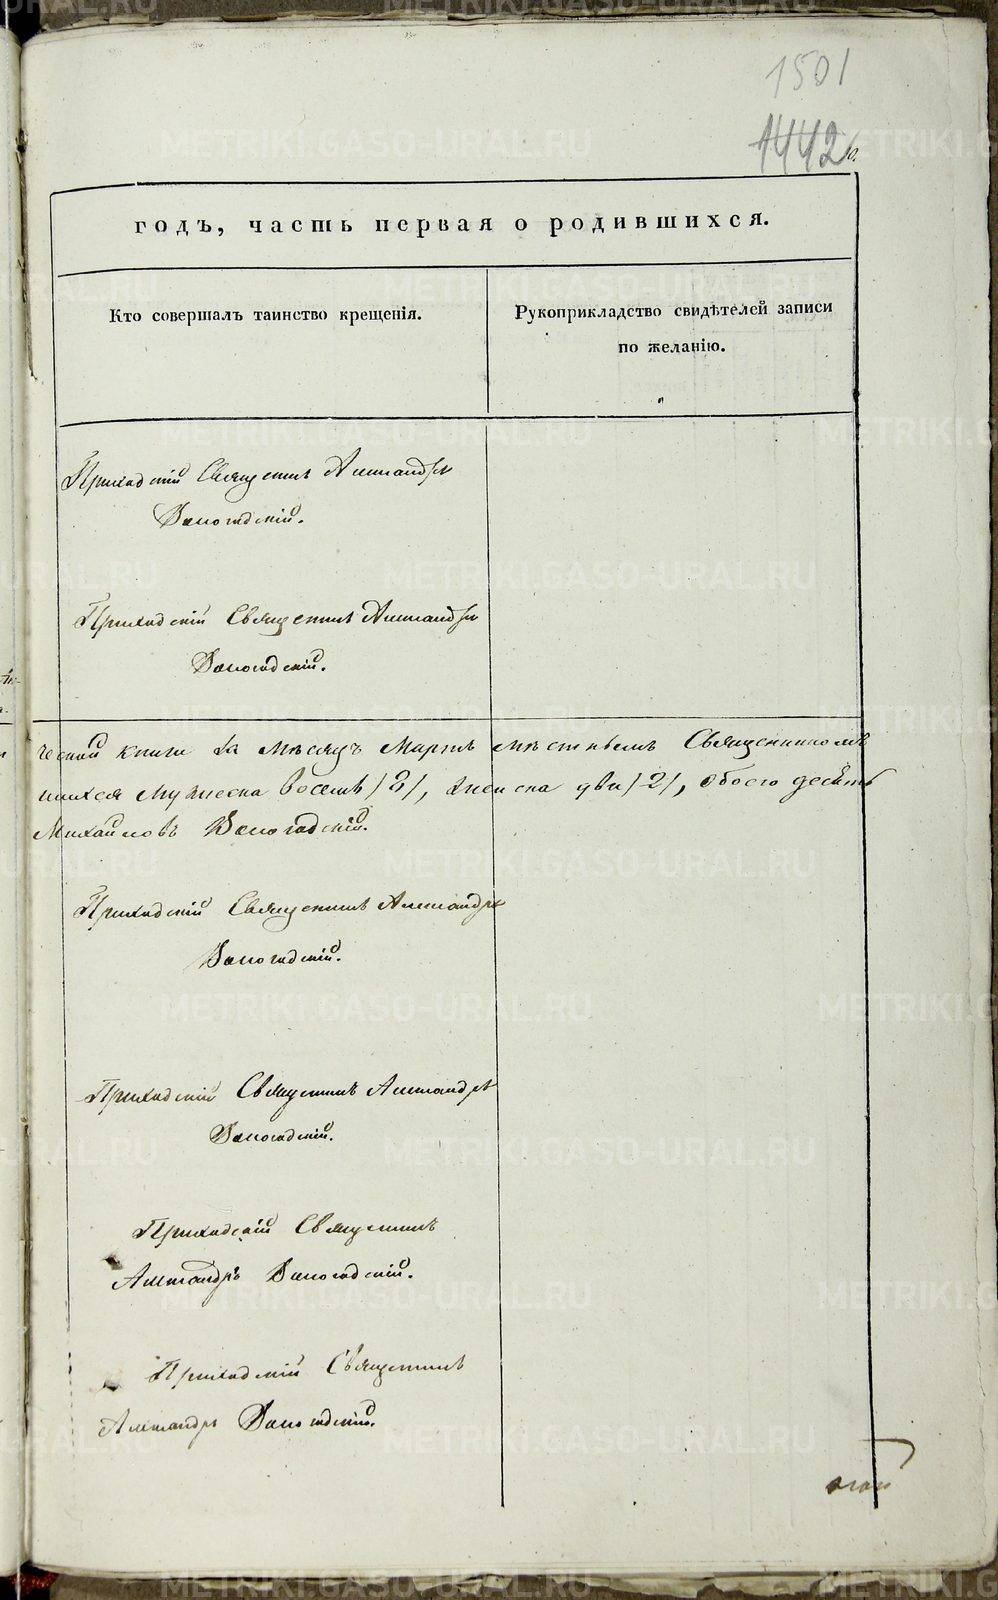 1501
1442
годъ, часть первая о родившихся.
Кто совершалъ таинство крещенія.
Рукоприкладство свидѣтелей записи
по желанію.
Приходскій Священникъ Александръ
Вологодскій.
Приходскій Священникъ Александръ
Вологодскій.
ческой книги за Мѣсяцъ Мартъ мѣстнымъ Священникомъ
шихся мужеска восемь /8/, женска два /2/, обоего десять
Михайловъ Вологодскій.
Приходскій Священникъ Александръ
Вологодскій.
Приходскій Священникъ Александръ
Вологодскій.
Приходскій Священникъ
Александръ Вологодскій.
Приходскій Священникъ
Александръ Вологодскій.
METRIKI.GASO-URAL.RU